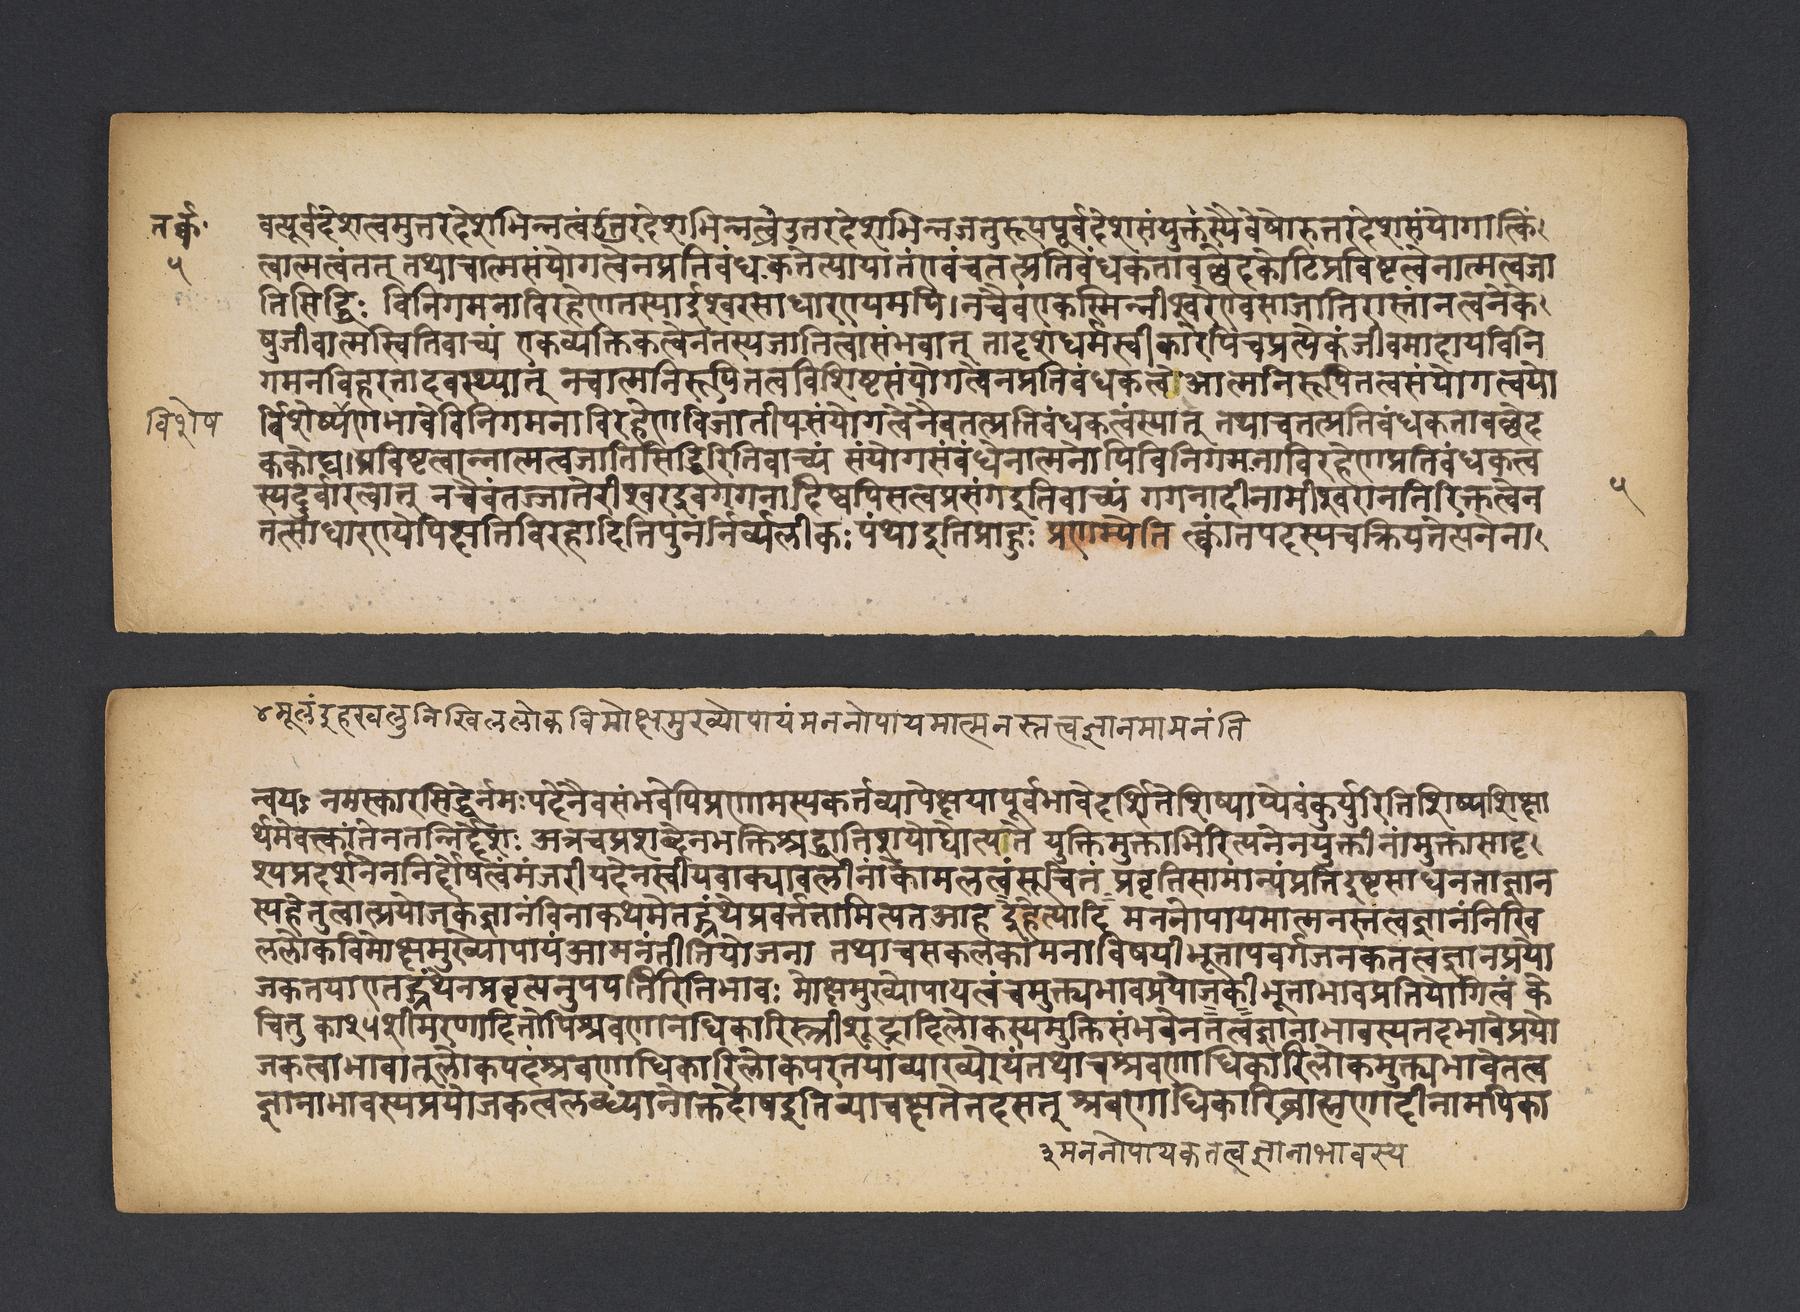 तर्क॰
५
वत्पूर्वदेशत्वमुत्तरदेशभिन्नत्वंउत्तरदेशभिन्नत्वंउत्तरदेशभिन्नजतुरूपपूर्वदेशसंयुक्तस्यैवेषोरुत्तरदेशसंयोगात्किं
त्वात्मत्वंतत् तथाचात्मसंयोगत्वेनप्रतिबंधकतेत्यायातंएवंचतत्प्रतिबंधकतावच्छेदककोटिप्रविष्टत्वेनात्मत्वजा
तिसिद्धिः विनिगमनाविरहेणतस्याईश्वरसाधारण्यमपि।नचैवंएकस्मिन्नीश्वरेएवसाजातिरास्तांनत्वनेके
षुजीवात्मस्वितिवाच्यं एकव्यक्तिकत्वेनतस्यजातित्वासंभवात् तादृशेधर्मस्वीकारेपिचप्रत्येकंजीवमादायविनि
गमनविरहतादवस्थ्यात् नचात्मनिरूपितत्वविशिष्टसंयोगत्वेनप्रतिबंधकत्वे।आत्मनिरूपितत्वसंयोगत्वयो
विशेष
र्विशेष्यणभावेविनिगमनाविरहेणविजातीयसंयोगत्वेनैवतत्प्रतिबंधकत्वंस्यात् तथाचतत्प्रतिबंधकतावच्छेद
ककोट्य।प्रविष्टत्वान्नात्मत्वजातिसिद्धिरितिवाच्यं संयोगसंबंधेनात्मनोपिविनिगमनाविरहेणप्रतिबंधकत्व
स्यदुर्वारत्वात् नचैवंतज्जातेरीश्वरइवगगनादिष्वपिसत्वप्रसंगइतिवाच्यं गगनादीनामीश्वरानतिरिक्तत्वेन
५
तत्साधारण्येपिक्षतिविरहादितिपुनर्निर्व्यलीकः पंथाइतिप्राहुः प्रणम्येति त्त्कांतपदस्यचक्रियतेत्यनेना
४मूलंइहखलुनिखिललोकविमोक्षमुख्योपायंमननोपायमात्मनस्तत्त्वज्ञानमामनंति
न्वयः नमस्कारसिद्धेर्नमःपदेनैवसंभवेपिप्रणामस्यकर्तव्यापेक्षयापूर्वभावेदर्शितेशिष्याप्येवंकुर्युरितिशिष्यशिक्षा
र्थमेवत्त्कांतेनतन्निर्द्देशः अत्रचप्रशब्देनभक्तिश्रद्धातिशयोद्योत्यते युक्तिमुक्ताभिरित्यनेनयुक्तीनांमुक्तासादृ
श्यप्रदर्शनेननिर्दोषत्वंमंजरीपदेनस्वीयवाक्यावलीनांकोमलत्वंसूचितं प्रवृत्तिसामान्यंप्रतिइष्टसाधनताज्ञान
स्यहेतुत्वात्प्रयोजकज्ञानंविनाकथमेतद्ग्रंथेप्रवर्त्ततामित्यतआह इहेत्यादि मननोपायमात्मनस्तत्वज्ञानंनिखि
ललोकविमोक्षमुख्योपायंआमनंतीतियोजना तथाचसकलकामनाविषयीभूतापवर्गजनकतत्वज्ञानप्रयो
जकतयाएतद्ग्रंथेनप्रवृत्यनुपपत्तिरितिभावः मोक्षमुख्योपायत्वंचमुक्त्यभावप्रयोजकीभूताभावप्रतियोगित्वं के
चित्तु काश्यशीमरणादितोपिश्रवणानधिकारिस्त्रीशूद्रादिलोकस्यमुक्तिसंभवेनतत्वज्ञानाभावस्यतदभावेप्रयो
जकत्वाभावात्लोकपदंश्रवणाधिकारिलोकपरतयाव्याख्येयंतथाचश्रवणाधिकारिलोकमुक्त्यभावेतत्व
ज्ञानाभावस्यप्रयोजकत्वलब्ध्यानोक्तदोषइतिव्याचक्षतेतदसत् श्रवणाधिकारिब्राह्मणादीनामपिका
३मननोपायकतत्वज्ञानाभावस्य